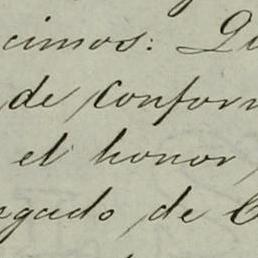 cimos: Qu
de conform
el honor,
zgado de C